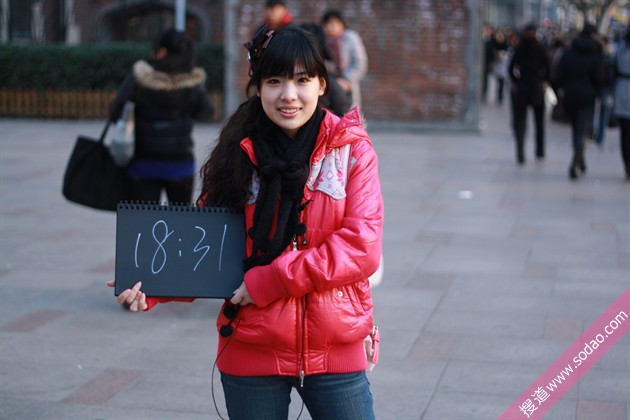 18:31
搜道www.sodao.com